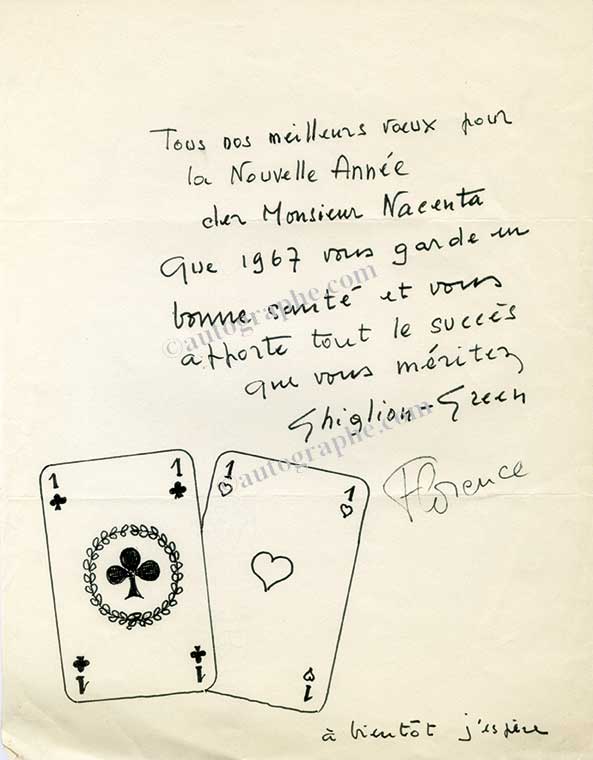 Tous nos meilleurs vœux pour
la Nouvelle Année
cher Monsieur Nacenta
Que 1967 vous garde en
bonne santé et vous
apporte tout le succès
que vous méritez
Ghiglion-Green
Florence
1 1
1 1
1 1
1
à bientôt j'espère
©autographe.com
©autographe.com